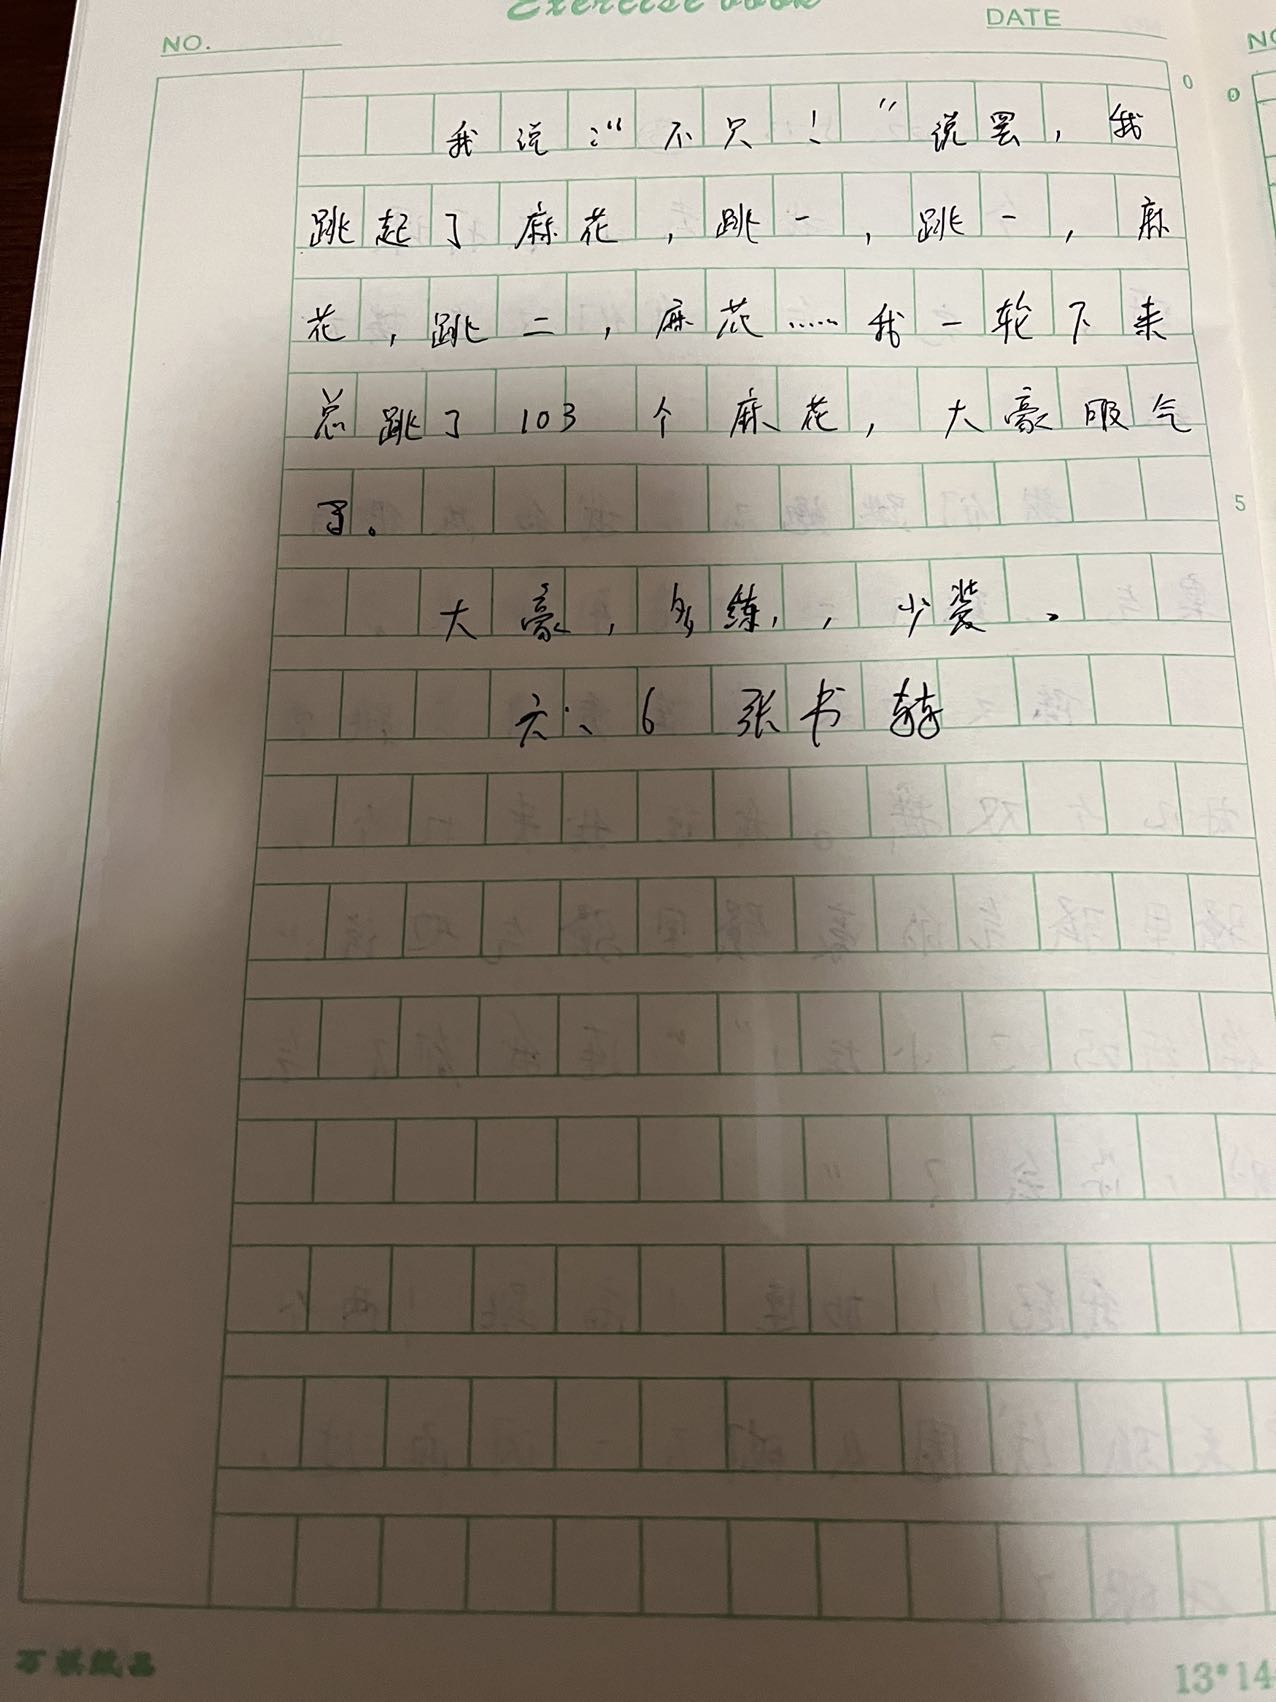 Exercise book
NO.
DATE
NO
0
0
我说:“不只!”说罢,我
跳起了麻花,跳一,跳一,麻
花,跳二,麻花……我一轮下来
总跳了103个麻花,大豪服气
了。
5
大豪,多练,,少装。
六、6 张书
13*14